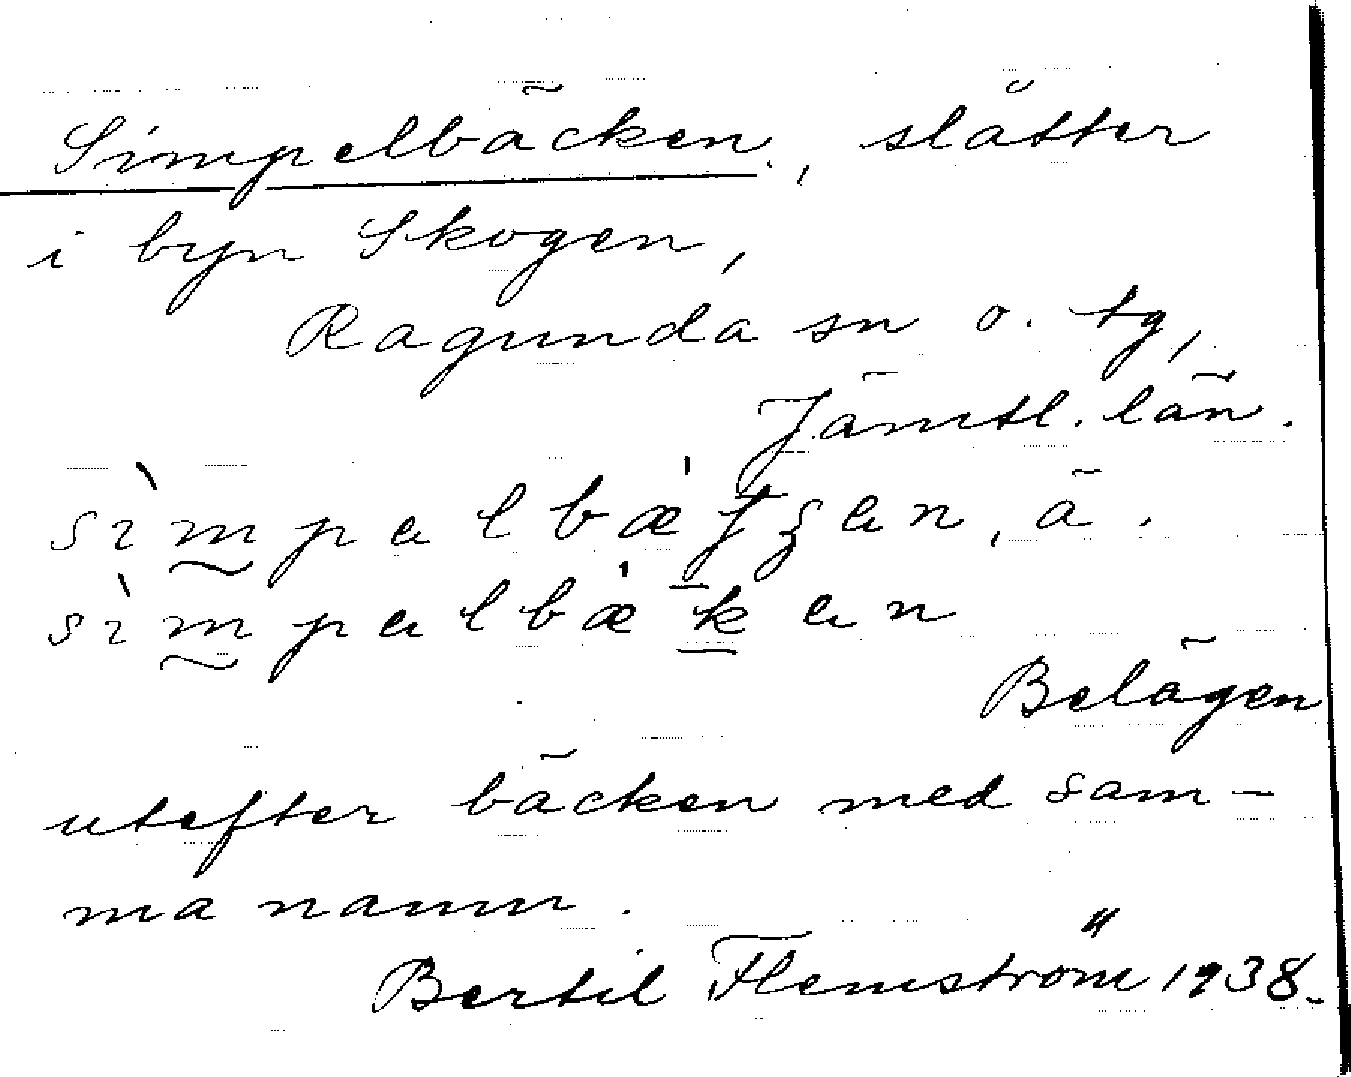 Simpelbäcken, slåtter
i byn Skogen,
Ragunda sn o. tg,
Jämtl. län.
sìm̰pəlbæ̀ʈʂən, ä.
sìm̰pəlbæ̀k̲ən
Belägen
utefter bäcken med sam-
ma namn.
Bertil Flemström 1938.